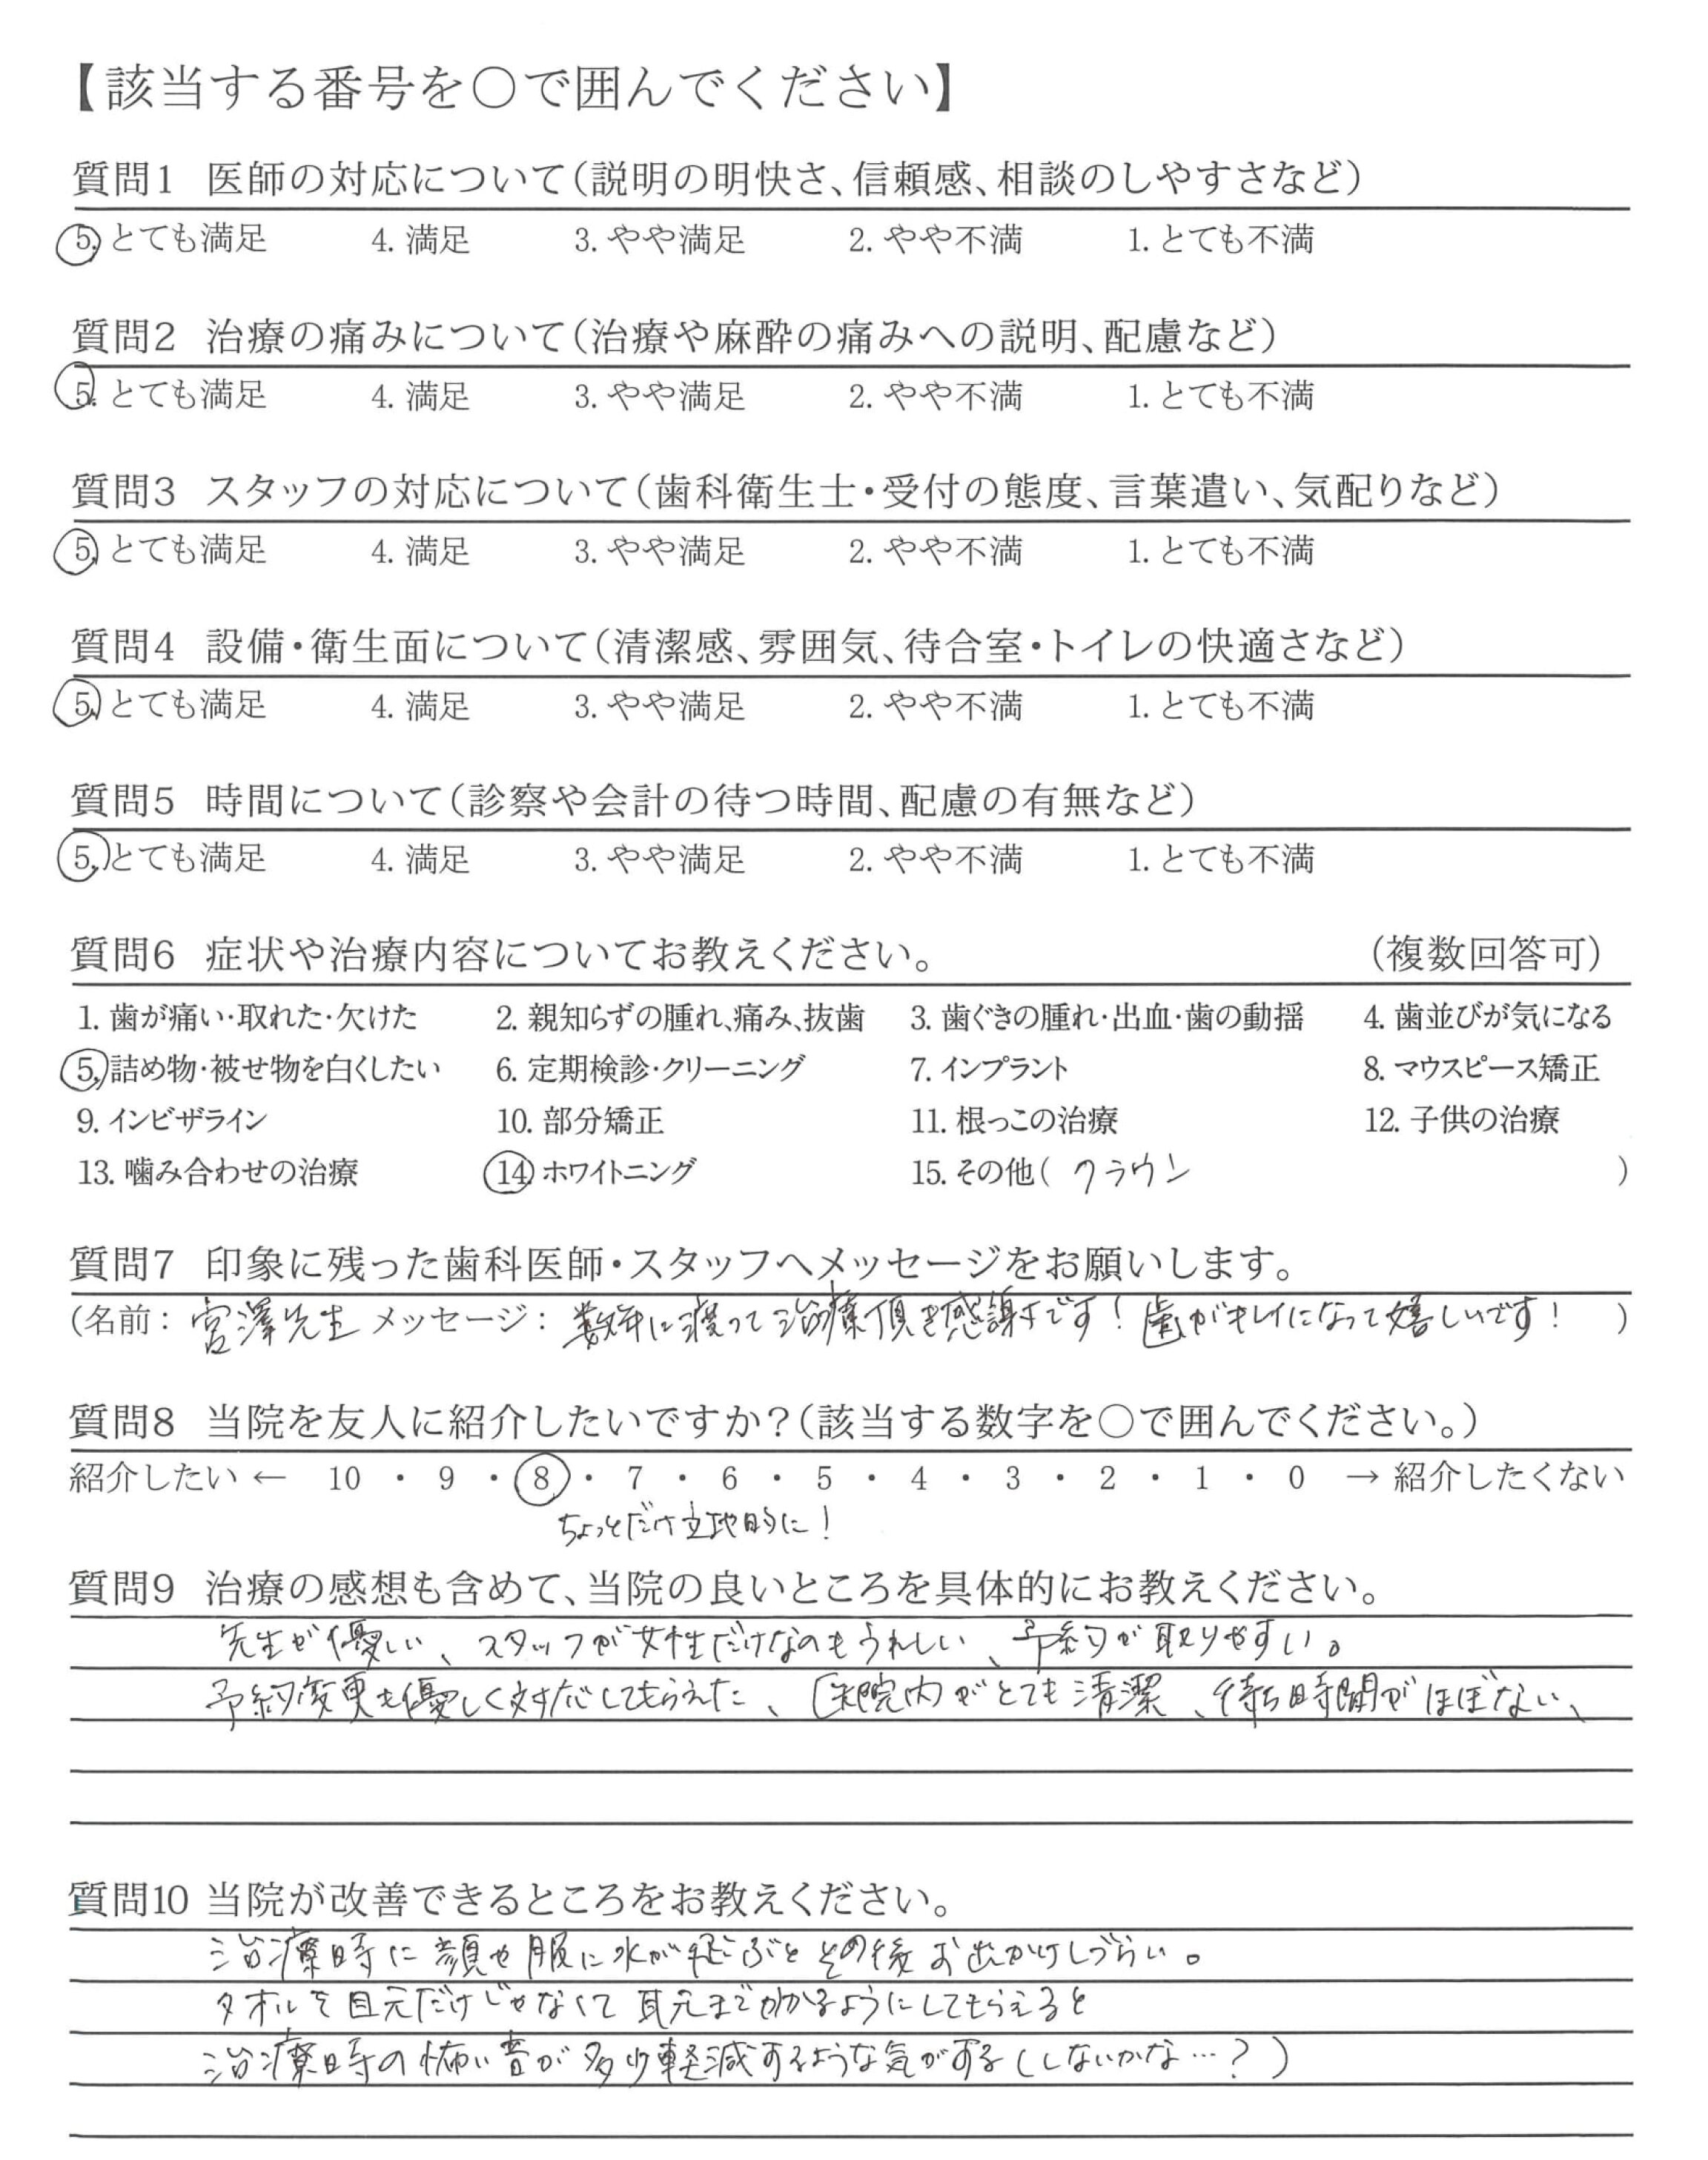 【該当する番号を○で囲んでください】
質問1 医師の対応について（説明の明快さ、信頼感、相談のしやすさなど）
5. とても満足 4. 満足 3. やや満足 2. やや不満 1. とても不満
質問2 治療の痛みについて（治療や麻酔の痛みへの説明、配慮など）
5. とても満足 4. 満足 3. やや満足 2. やや不満 1. とても不満
質問3 スタッフの対応について（歯科衛生士・受付の態度、言葉遣い、気配りなど）
5. とても満足 4. 満足 3. やや満足 2. やや不満 1. とても不満
質問4 設備・衛生面について（清潔感、雰囲気、待合室・トイレの快適さなど）
5. とても満足 4. 満足 3. やや満足 2. やや不満 1. とても不満
質問5 時間について（診察や会計の待つ時間、配慮の有無など）
5. とても満足 4. 満足 3. やや満足 2. やや不満 1. とても不満
質問6 症状や治療内容についてお教えください。 （複数回答可）
1. 歯が痛い・取れた・欠けた 2. 親知らずの腫れ、痛み、抜歯 3. 歯ぐきの腫れ・出血・歯の動揺 4. 歯並びが気になる
5. 詰め物・被せ物を白くしたい 6. 定期検診・クリーニング 7. インプラント 8. マウスピース矯正
9. インビザライン 10. 部分矯正 11. 根っこの治療 12. 子供の治療
13. 噛み合わせの治療 14. ホワイトニング 15. その他（ クラウン ）
質問7 印象に残った歯科医師・スタッフへメッセージをお願いします。
（名前： 宮澤先生 メッセージ： 数年に渡って治療頂き感謝です！歯がキレイになって嬉しいです！ ）
質問8 当院を友人に紹介したいですか？（該当する数字を○で囲んでください。）
紹介したい ← 10 ・ 9 ・ 8 ・ 7 ・ 6 ・ 5 ・ 4 ・ 3 ・ 2 ・ 1 ・ 0 → 紹介したくない
ちょっとだけ立地的に！
質問9 治療の感想も含めて、当院の良いところを具体的にお教えください。
先生が優しい、スタッフが女性だけなのもうれしい、予約が取りやすい。
予約変更も優しく対応してもらえた、医院内がとても清潔、待ち時間がほぼない、
質問10 当院が改善できるところをお教えください。
治療時に顔や服に水が飛ぶとその後お出かけしづらい。
タオルを目元だけじゃなくて耳元までかかるようにしてもらえると
治療時の怖い音が多少軽減するような気がする（しないかな…？）